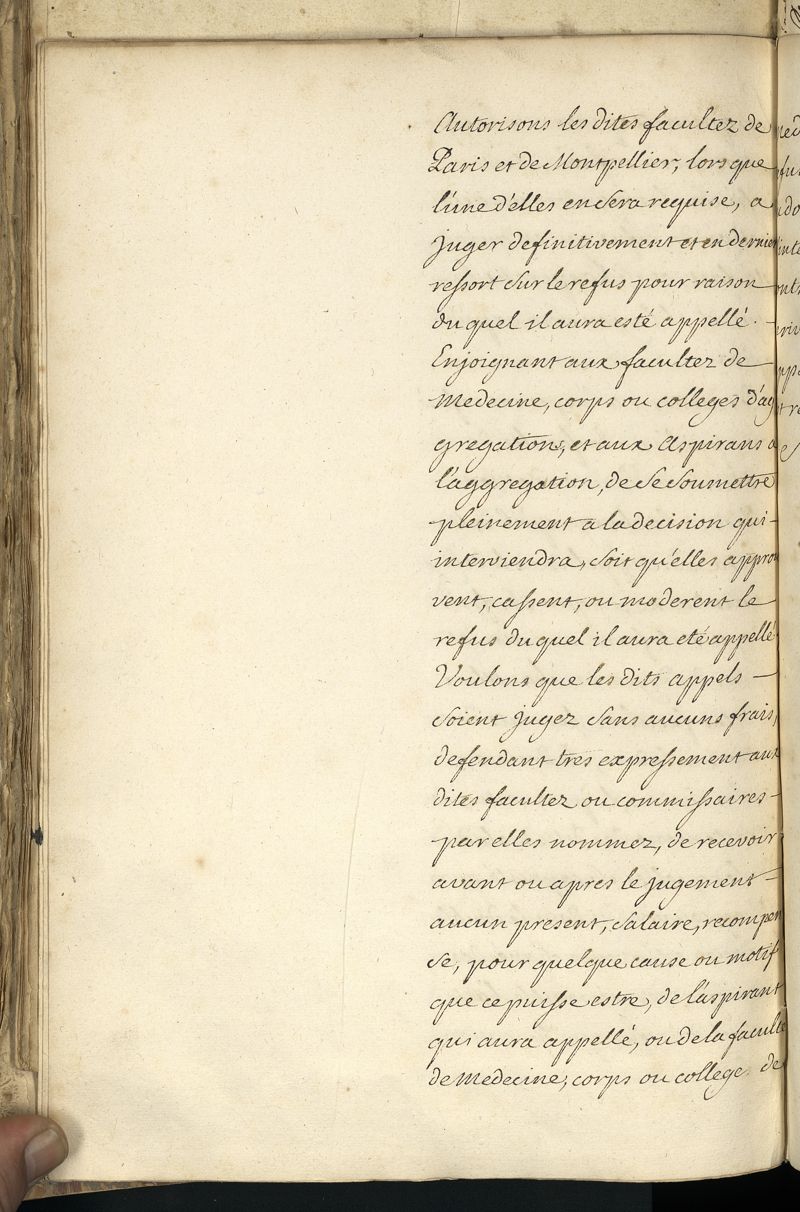 Autorisons les dites facultez de
Paris et de Montpellier, lors que
l'une d'elles en sera requise, a
juger definitivement et en dernier
ressort sur le refus pour raison
du quel il aura esté appellé.
Enjoignant aux facultez de
Medecine, corps ou colleges d'ag
gregation, et aux Aspirans a
l'aggregation, de se soumettre
pleinement a la decision qui
interviendra, soit qu'elles approu
vent, cassent, ou moderent le
refus du quel il aura eté appellé
Voulons que les dits appels
soient jugez sans aucuns frais,
defendant tres expressement aux
dites facultez ou commissaires
par elles nommez, de recevoir
avant ou apres le jugement
aucun present, salaire, recompen
se, pour quelque cause ou motif
que ce puisse estre, de l'aspirant
qui aura appellé, ou de la faculté
de Medecine, corps ou college de